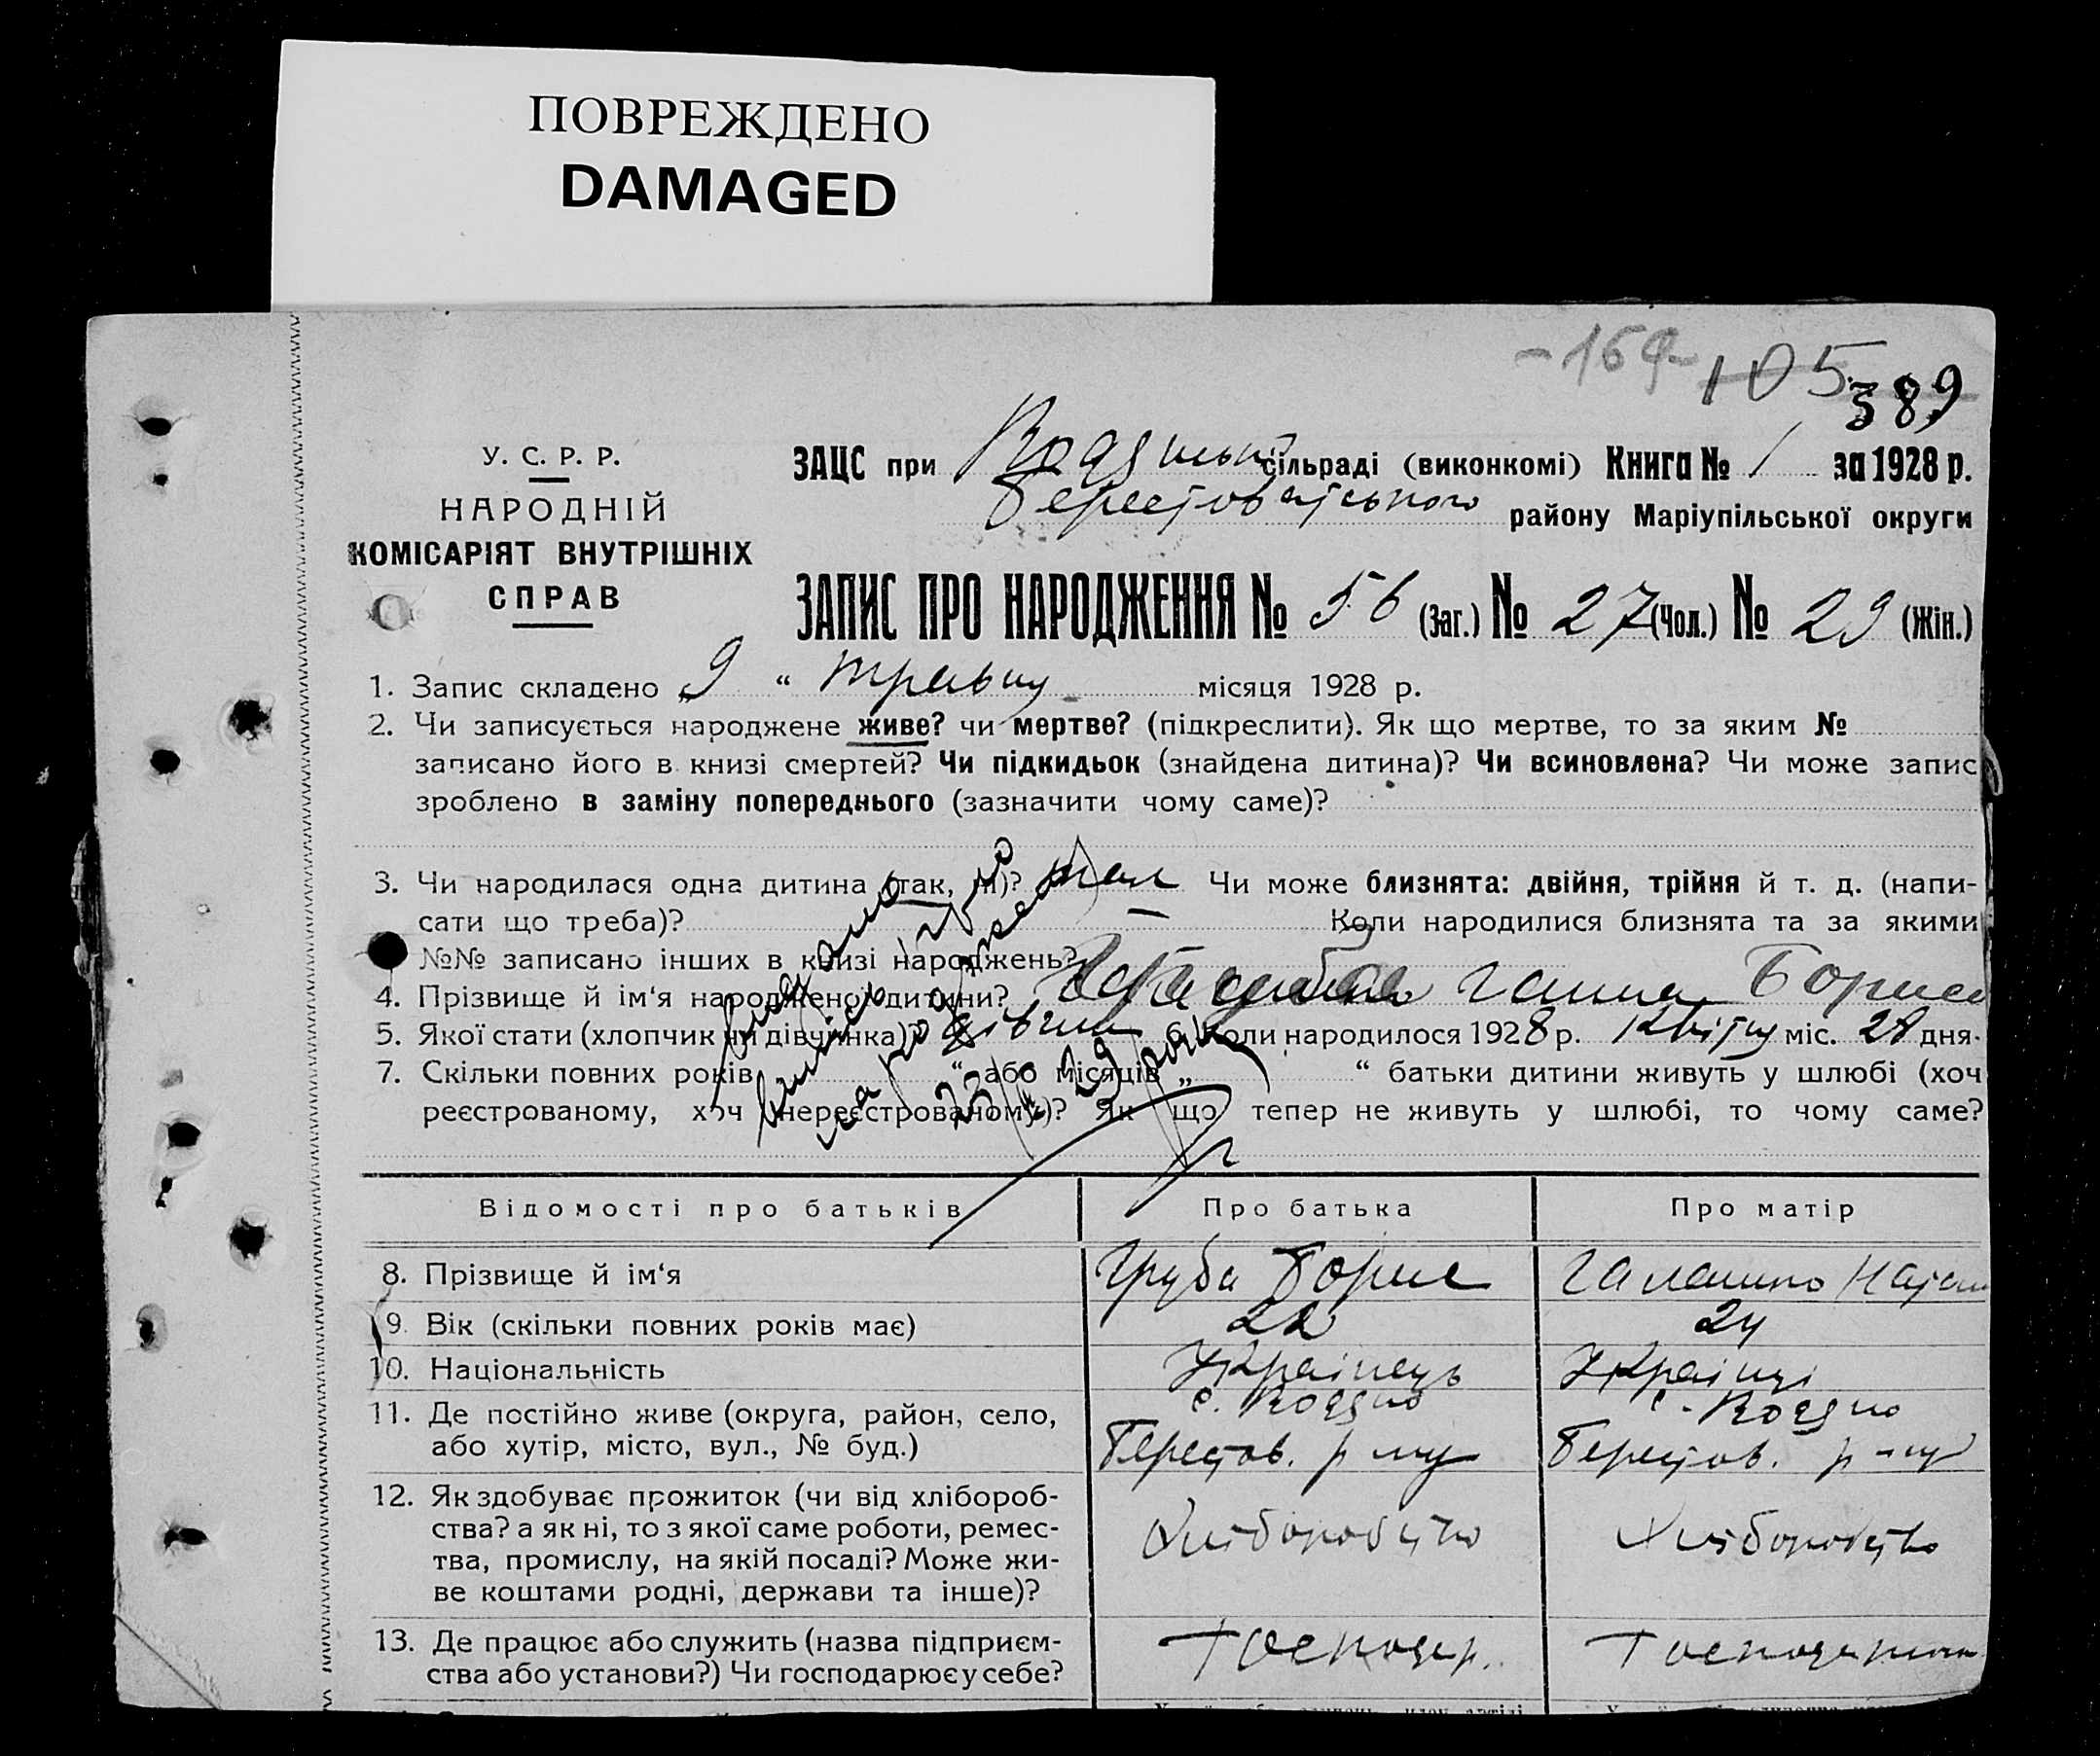 ПОВРЕЖДЕНО
DAMAGED
105
389
У. С. Р. Р.
НАРОДНІЙ
КОМІСАРІЯТ ВНУТРІШНІХ
СПРАВ
ЗАЦС при сільраді (виконкомі) Книга № 1 за 1928 р.
Берестоватського району Маріупільської округи
ЗАПИС ПРО НАРОДЖЕННЯ № 56 (Заг.) № 27 (Чол.) № 29 (Жін.)
1. Запис складено „ 9 “ травня місяця 1928 р.
2. Чи записується народжене живе? чи мертве? (підкреслити). Як що мертве, то за яким №
записано його в книзі смертей? Чи підкидьок (знайдена дитина)? Чи всиновлена? Чи може запис
зроблено в заміну попереднього (зазначити чому саме)?
3. Чи народилася одна дитина (так, ні)? так Чи може близнята: двійня, трійня й т. д. (напи-
сати що треба)? — Коли народилися близнята та за якими
№№ записано інших в книзі народжень?
4. Прізвище й ім‘я народженої дитини? Ганна Борис
5. Якої стати (хлопчик чи дівчинка)? дівчина 6. Коли народилося 1928 р. Квітня міс. 28 дня.
7. Скільки повних років “ або місяців „ “ батьки дитини живуть у шлюбі (хоч
реєстрованому, хоч нереєстрованому)? Як що тепер не живуть у шлюбі, то чому саме?
Відомості про батьків Про батька Про матір
8. Прізвище й ім‘я Груба Борис
9. Вік (скільки повних років має) 22 24
10. Національність Українець Українці
11. Де постійно живе (округа, район, село, с. с.
або хутір, місто, вул., № буд.) Берестов. р-ну Берестов. р-ну
12. Як здобуває прожиток (чи від хлібороб-
ства? а як ні, то з якої саме роботи, ремес- Хліборобство Хліборобство
тва, промислу, на якій посаді? Може жи-
ве коштами родні, держави та інше)?
13. Де працює або служить (назва підприєм- Господар.
ства або установи?) Чи господарює у себе?